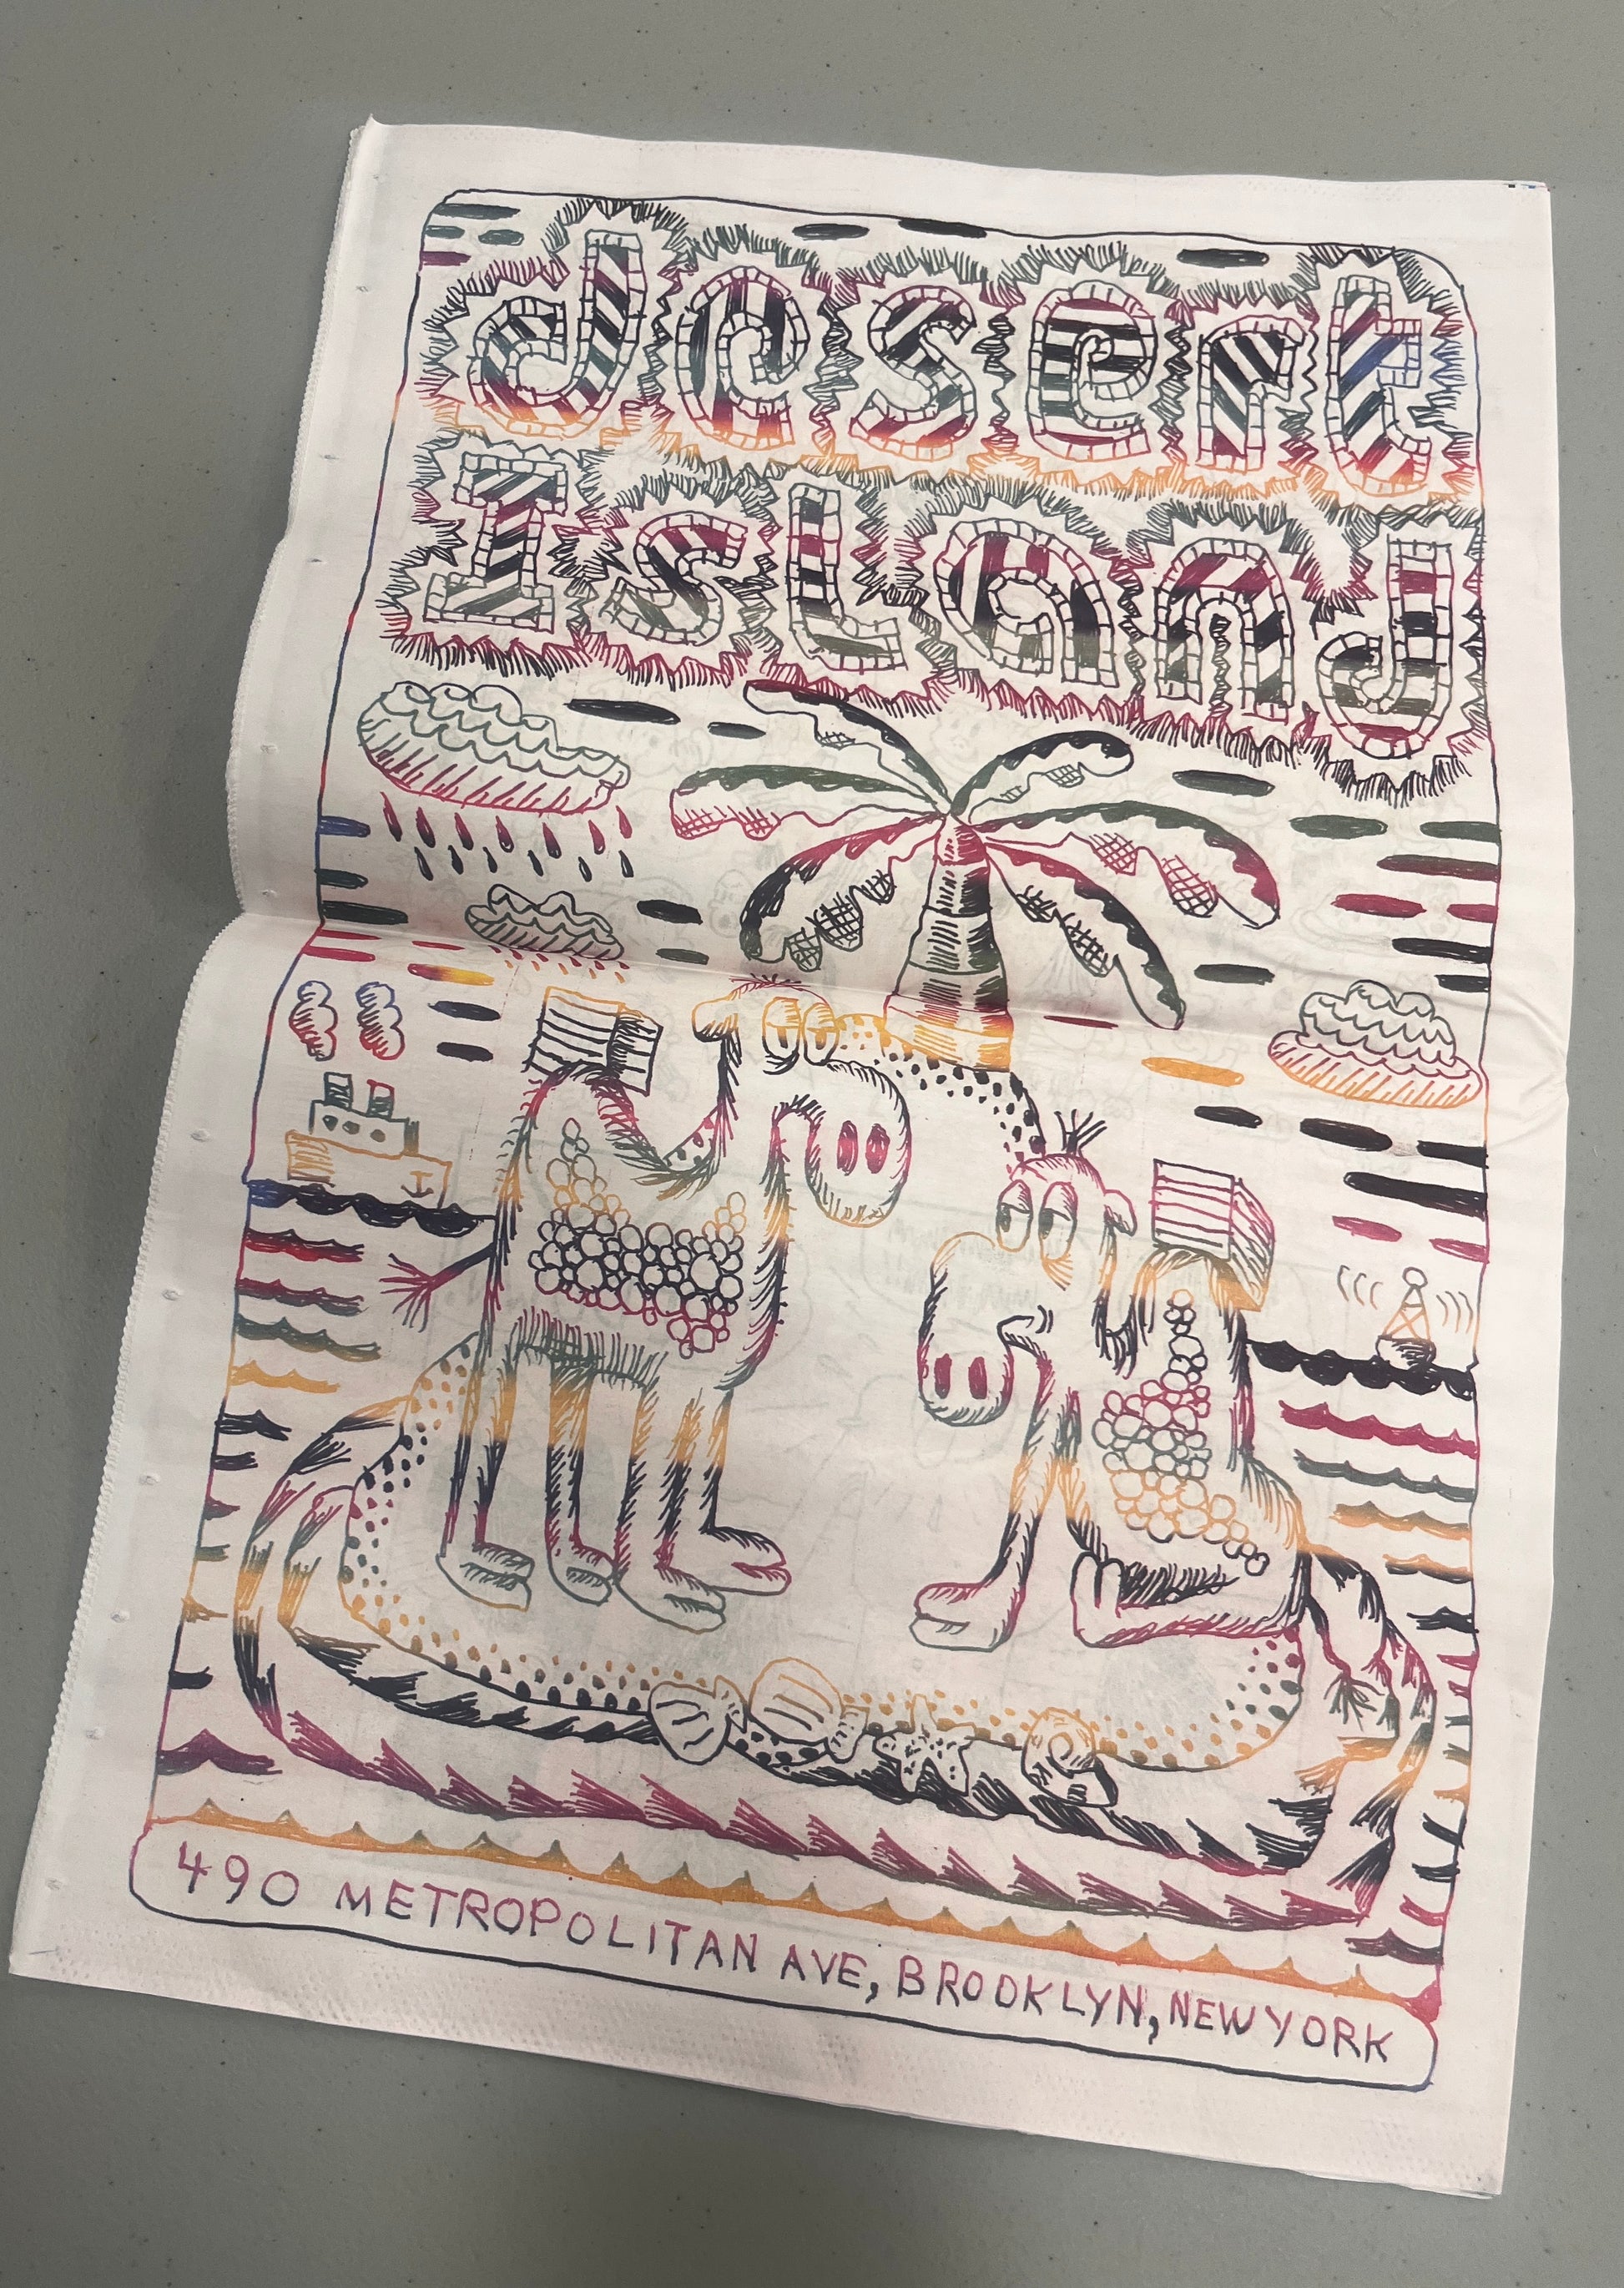 desert
Island
490 METROPOLITAN AVE, BROOKLYN, NEW YORK